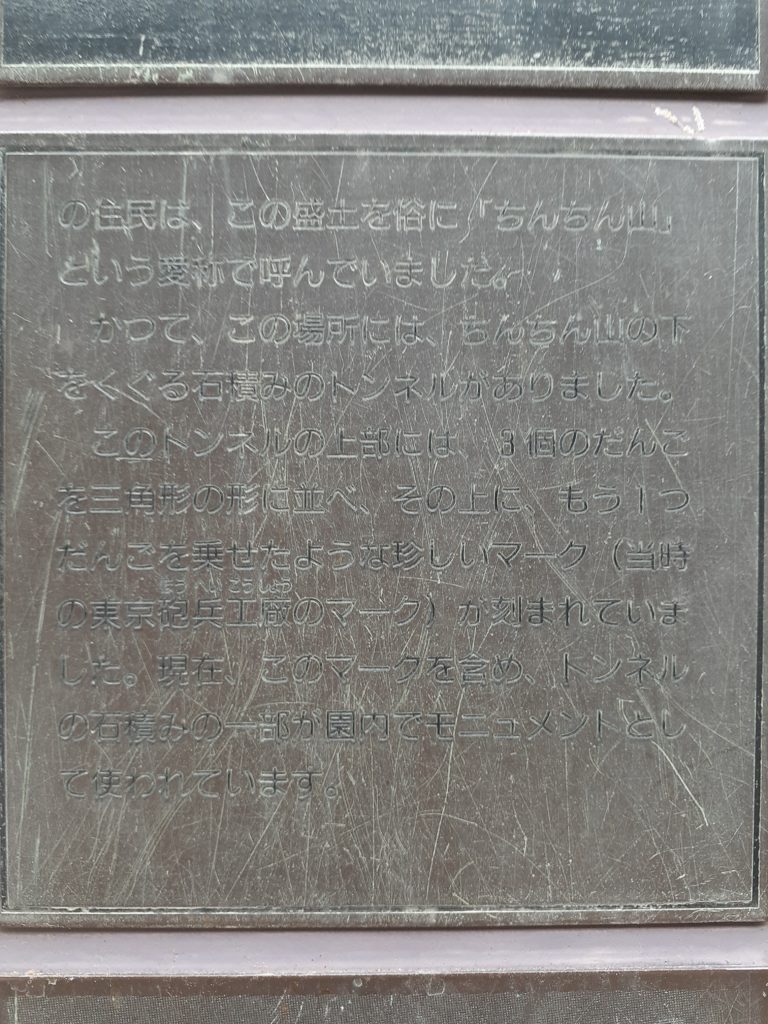 の住民は、この盛土を俗に「ちんちん山」
という愛称で呼んでいました。
かつて、この場所には、ちんちん山の下
をくぐる石積みのトンネルがありました。
このトンネルの上部には、3個のだんご
を三角形の形に並べ、その上に、もう1つ
だんごを乗せたような珍しいマーク（当時
ほうへいこうしょう
の東京砲兵工廠のマーク）が刻まれていま
した。現在、このマークを含め、トンネル
の石積みの一部が園内でモニュメントとし
て使われています。